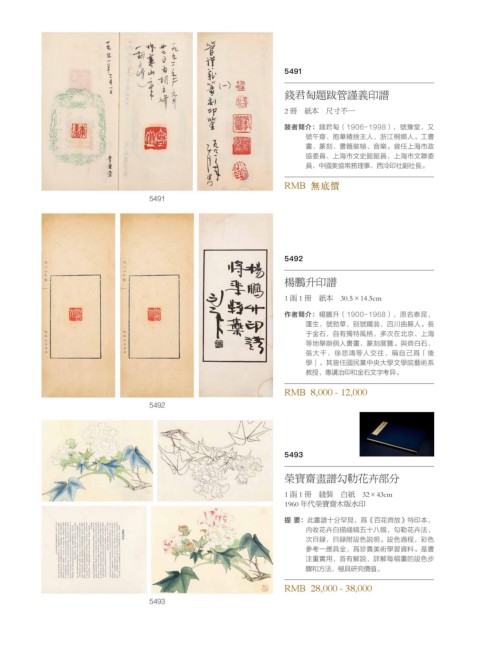 5491
錢君匋題跋管謹義印譜
2 冊　紙本　尺寸不一
跋者簡介：錢君匋（1906-1998），號豫堂，又
號午齋，抱華精捨主人，浙江桐鄉人。工書
畫，篆刻，書籍裝幀，音樂。曾任上海市政
協委員，上海市文史館館員，上海市文聯委
員，中國美協常務理事，西泠印社副社長。
RMB 無底價
5491
楊鵬升印譜
將軍特藥
5492
5492
楊鵬升印譜
1 函 1 冊　紙本　30.5×14.5cm
作者簡介：楊鵬升（1900-1968），原名泰昆，
蓬生，號勁草，別號鐵翁，四川曲縣人。長
于金石，自有獨特風格，多次在北京、上海
等地舉辦個人書畫，篆刻展覽。與齊白石，
張大千，徐悲鴻等人交往，稱自己爲（後
學），其曾任國民黨中央大學文學院藝術系
教授，專講治印和金石文字考異。
RMB 8,000 - 12,000
5493
榮寶齋畫譜勾勒花卉部分
1 函 1 冊　綫裝　白紙　32×43cm
1960 年代榮寶齋木版水印
提 要：此畫譜十分罕見，爲《百花齊放》特印本，
内收花卉白描綫稿五十八幅，勾勒花卉法，
次目録，目録附設色説明，設色過程，彩色
參考一應具全，爲珍貴美術學習資料。是書
注重實用，首有解説，詳解每幅畫的設色步
驟和方法，極具研究價值。
RMB 28,000 - 38,000
5493